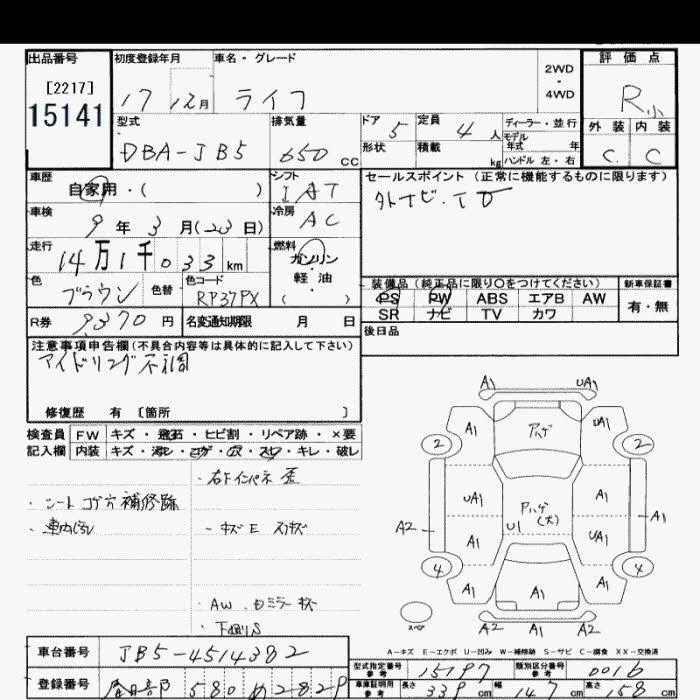 出品番号 初度登録年月 車名・グレード 2WD・4WD 評価点
[2217]
15141
17 12月 ライフ R小
型式 排気量 ドア 5 定員 4 人 ディーラー・並行 外装 内装
DBA-JB5 650 cc 形状 積載 kg モデル年式 年 C C
ハンドル 左・右
車歴 シフト セールスポイント (正常に機能するものに限ります)
自家用・( ) IAT
車検 9年3月(23日) 冷房 AC
走行 14万1千033km 燃料 ガソリン
軽・油
( )
色 ブラウン 色替 色コード RP37PX
装備品 (純正品に限り○をつけてください) 新車保証書
PS PW ABS エアB AW 有・無
SR ナビ TV カワ
R券 9370円 名変通知期限 月 日 後日品
注意事項申告欄(不具合内容等は具体的に記入して下さい)
アイドリング不調
修復歴 有 [箇所 ]
検査員 FW キズ・飛石・ヒビ割・リペア跡・×要
記入欄 内装 キズ・汚レ・コゲ・穴・スレ・キレ・破レ
・シート コゲ穴補修跡
・車内汚レ
・右F インパネ 歪
・キズE
・AW
・下廻りS
A1 UA1
A1 アハゲ UA1
2 2
UA1 Pハゲ(大) A1
A2 U1 A1
A1 UA1
4 4
A1 A1 A1
A2 A1 A2
A-キズ E-エクボ U-凹み W-補修跡 S-サビ C-腐食 XX-交換済
車台番号 JB5-4514382
型式指定番号 参考 15197 類別区分番号 参考 0016
登録番号 春日部 580 め 2829
車庫証明用 参考 長さ 339 cm 幅 147 cm 高さ 158 cm